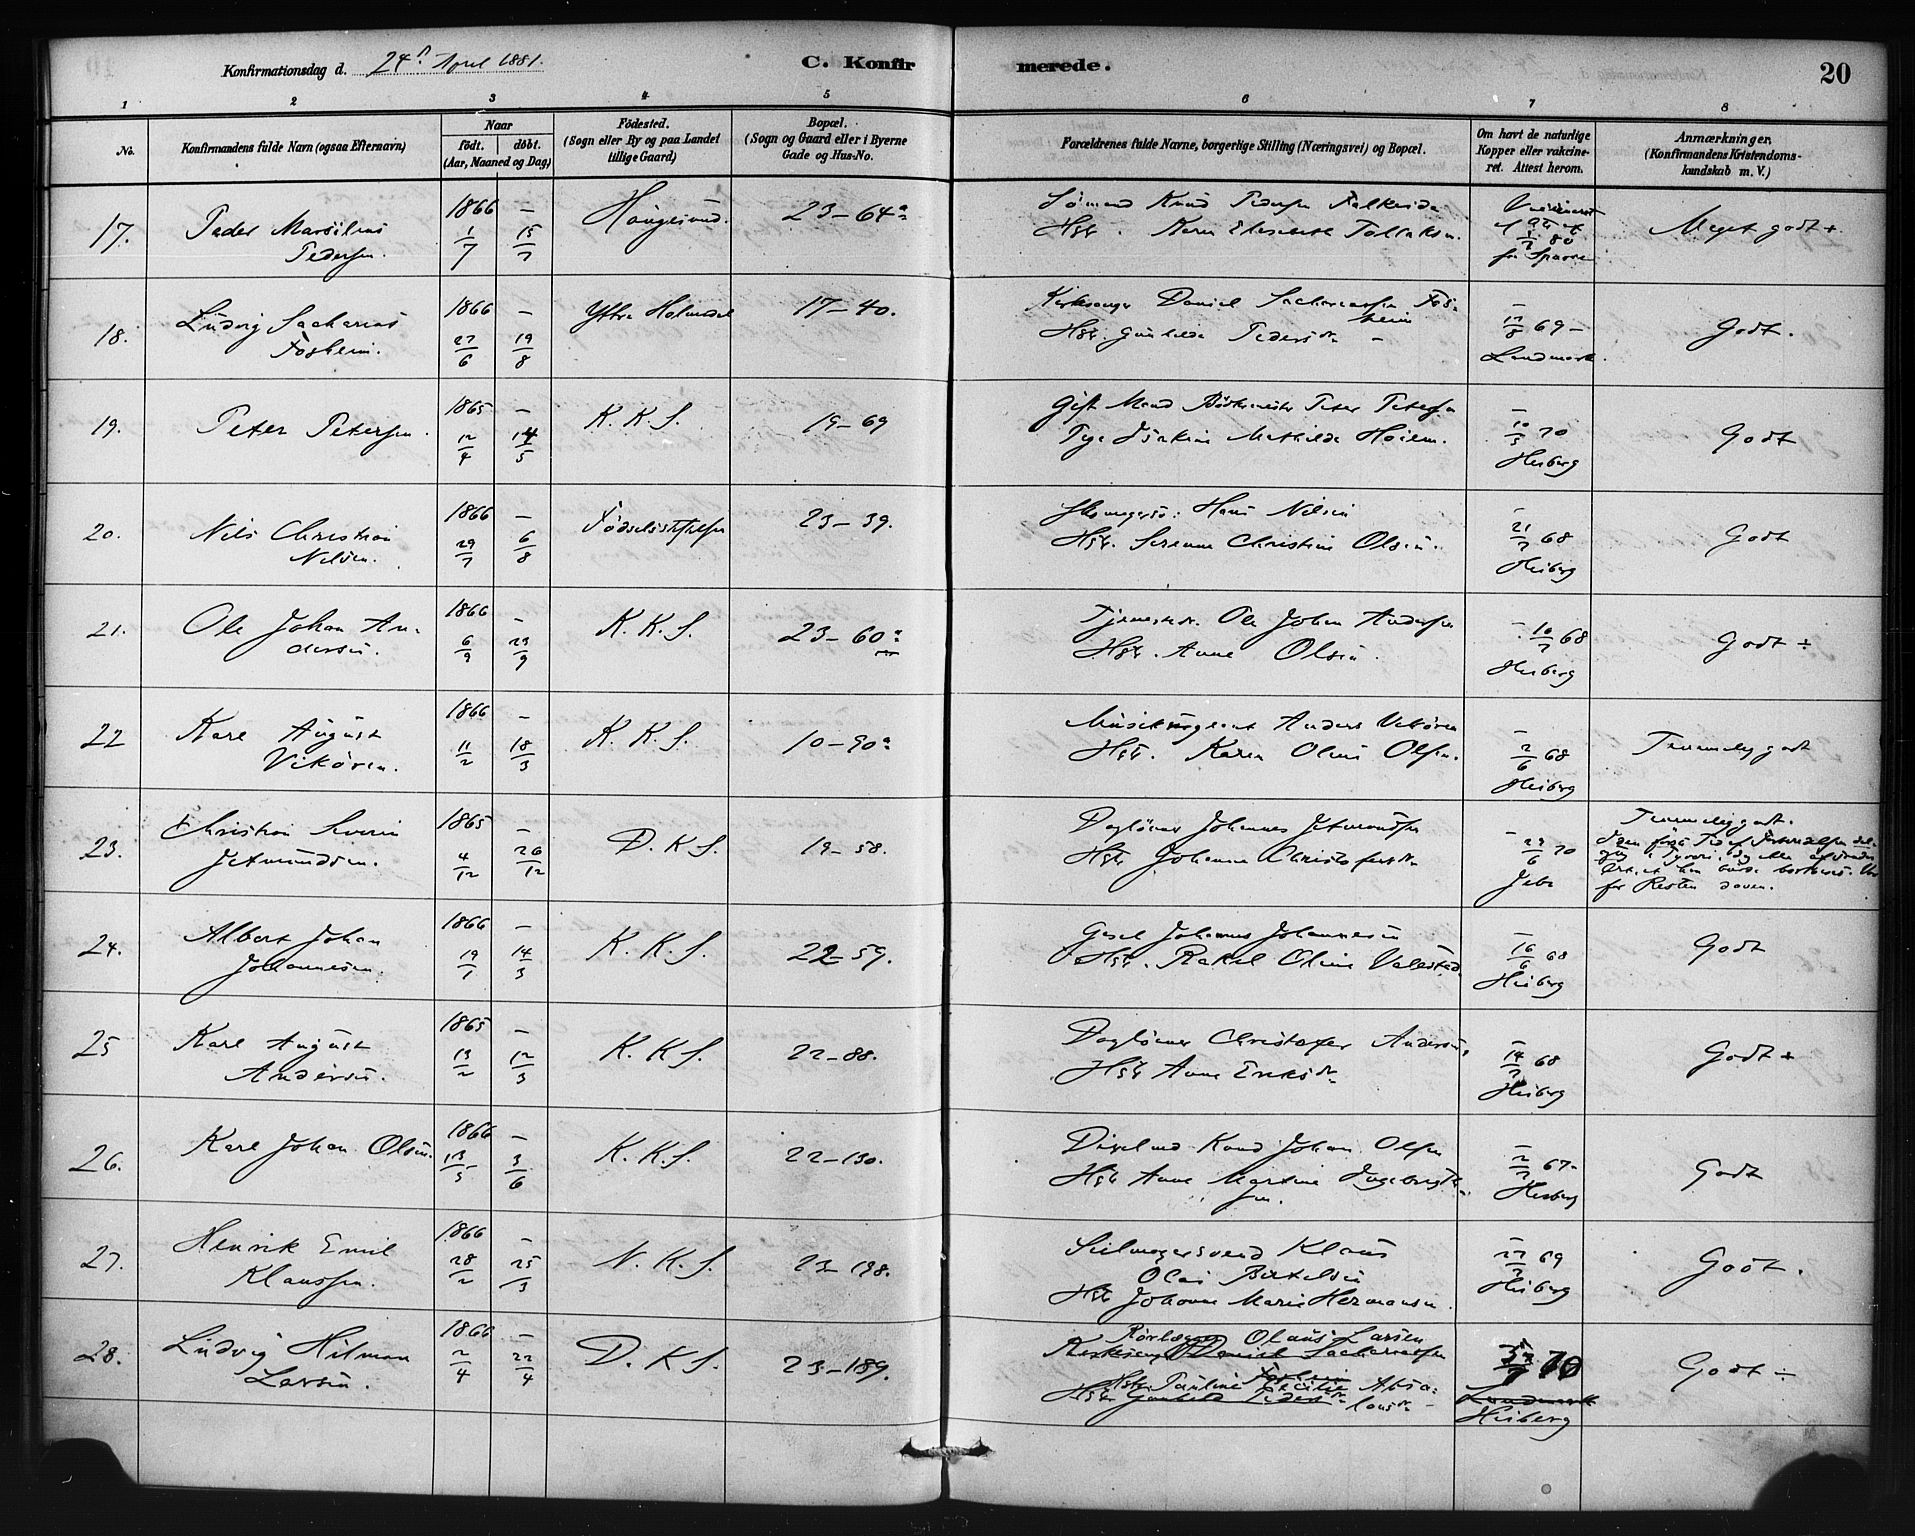 Konfirmationsdag d. 24de April 1881.
C. Konfirmerede.
20
1 2 3 4 5 6 7 8
No.
Konfirmandens fulde Navn (ogsaa Efternavn)
Naar
født. døbt.
(Aar, Maaned og Dag)
Fødested.
(Sogn eller By og paa Landet
tillige Gaard)
Bopæl.
(Sogn og Gaard eller i Byerne
Gade og Hus-No.
Forældrenes fulde Navne, borgerlige Stilling (Næringsvei) og Bopæl.
Om havt de naturlige
Kopper eller vakcine-
ret. Attest herom.
Anmærkninger.
(Konfirmandens Kristendoms-
kundskab m. V.)
17. Peder Marsilius
Pedersen
1866 –
1/7 15/7
Haugesund.
23–64a
Sømand Knud Pedersen
Hst. Karen Elisabeth
Meget godt +
18. Ludvig Sacharias
Fosheim.
1866 –
27/6 19/8
Ytre Holmedal
17–40.
Kirkesanger Daniel Sachariassen Fos-
heim
Hst. Gunhilde Pedersdr –
–
17/8 69 –
Landmark.
Godt.
19. Peter Petersen.
1865 –
12/4 14/5
K. K. S.
19–69
Gift Mand Bødkermester Peter Petersen
Pge Mathilde
–
10/5 70
Heiberg
Godt
20. Nils Christian
Nilsen.
1866 –
29/7 6/8
Fødselsstiftelsen
23–39.
Skomagersv: Hans Nilsen
Hst. Serene Christine Olsen.
–
21/7 68
Heiberg
Godt
21. Ole Johan An-
dersen.
1866 –
6/9 29/9
K. K. S.
23–60a
Tjenestek. Ole Johan Andersen
Hst. Anne Olsen.
– 10/7 68
Heiberg
Godt ÷
22 Karl August
Vikøren.
1866 –
11/2 18/3
K. K. S.
10–90a
Anders Vikøren
Hst. Karen Oline Olsen.
–
2/6 68
Heiberg
Temmelig godt
23. Christian Severin
Jetmundsen.
1865 –
4/12 26/12
D. K. S.
19–58.
Dagløner Johannes Jetmundsen
Hst. Johanne Christofersdr
–
29/6 70
Temmelig godt.
24. Albert Johan
Johannesen.
1866 –
19/1 14/3
K. K. S.
22–59.
Johannes Johannesen
Hst. Rakel Oline
–
16/6 68
Heiberg
Godt
25 Karl August
Andersen.
1865 –
13/2 12/3
K. K. S.
22–88.
Dagløner Christofer Andersen,
Hst Anne Eriksdr
–
14/7 68
Heiberg
Godt +
26. Karl Johan Olsen.
1866 –
13/5 3/6
K. K. S.
22–130.
Knud Johan Olsen
Hst Anne Martine Ingebrigt-
sen.
–
2/7 67.
Heiberg
Godt
27. Henrik Emil
Klaussen.
1866 –
28/2 25/3
N. K. S.
23–198.
Seilmagersvend Klaus
Olai Bertelsen
Hst Johanne Marie Hermansen.
–
27/7 69
Heiberg
Godt.
28. Ludvig Hilman
Larsen.
1866 –
2/4 22/4
D. K. S.
23–189.
Olaus Larsen
Kirkesanger Daniel Sachariassen
Fosheim
Hst. Pauline Cecilie Absa-
lonsdr
Hst Gunhild Pedersdr
70
Landmark
Heiberg
Godt ÷